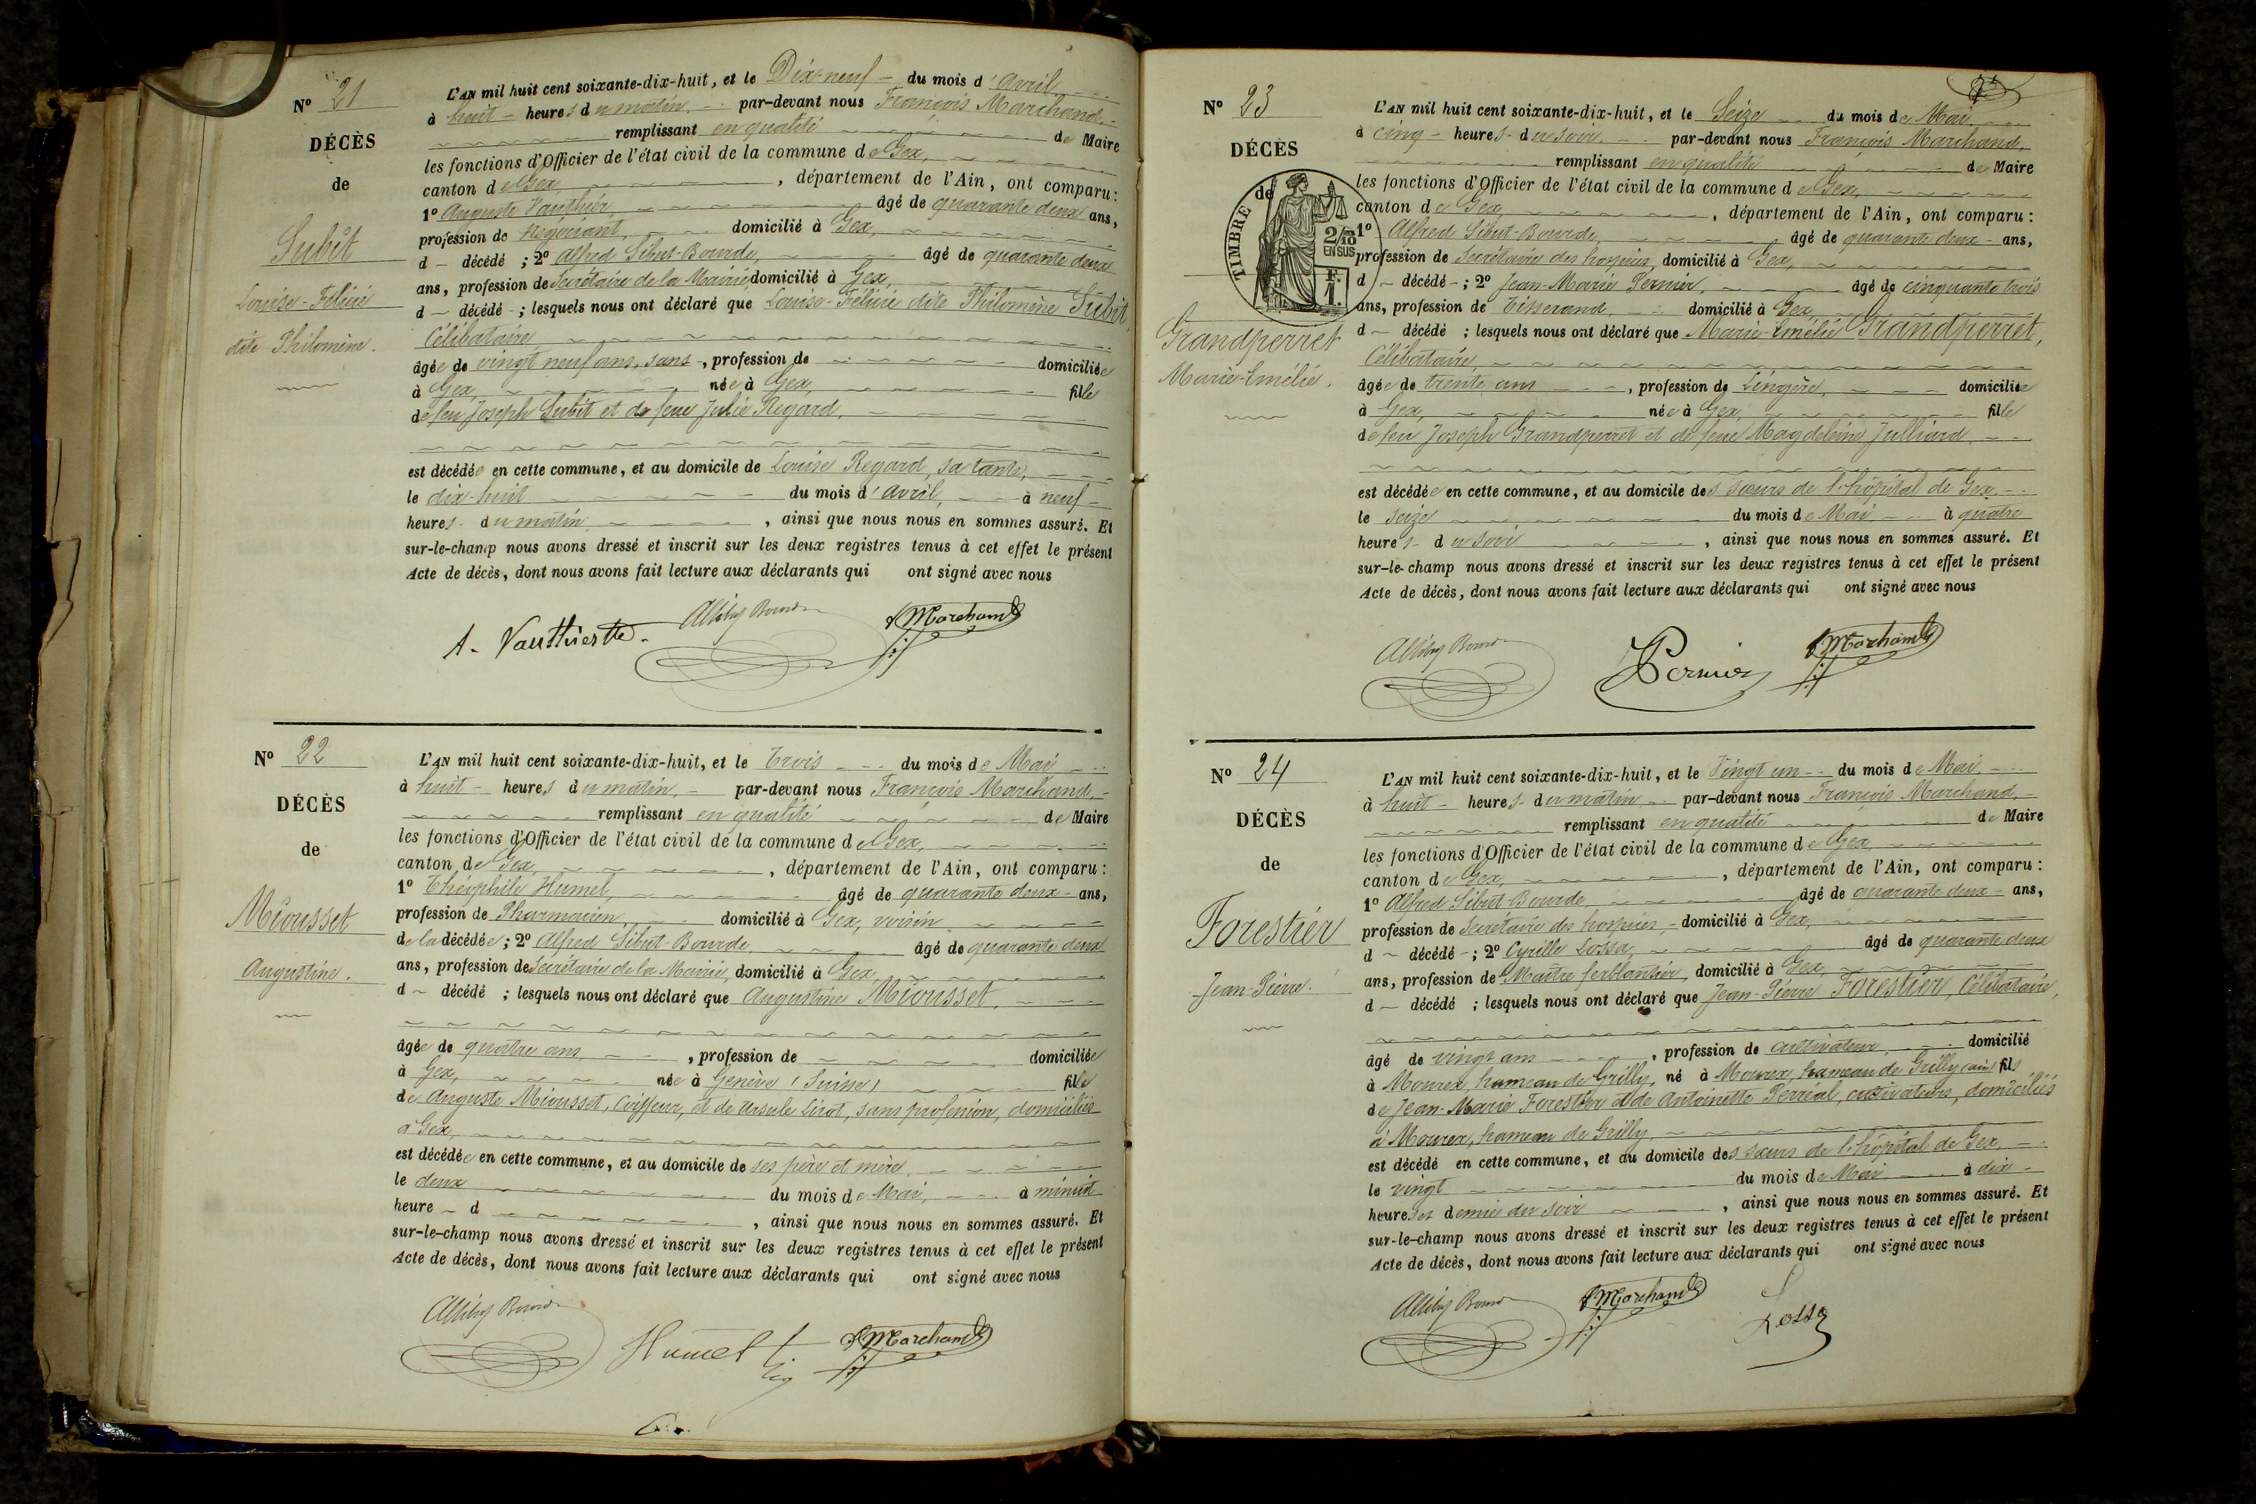 N° 21
DÉCÈS
de
Subit
Louise-Félicie
dite Philomène.
L'AN mil huit cent soixante-dix-huit, et le Dix-neuf du mois d'Avril,
à huit heures du matin, par-devant nous François Marchand,
remplissant en qualité de Maire
les fonctions d'Officier de l'état civil de la commune de Gex,
canton de Gex, département de l'Ain, ont comparu :
1° Auguste Vauthier âgé de quarante deux ans,
profession de Négociant, domicilié à Gex,
d décédé ; 2° Alfred Sibut-Bourde, âgé de quarante deux
ans, profession de Secrétaire de la Mairie, domicilié à Gex,
d décédé ; lesquels nous ont déclaré que Louise-Félicie dite Philomène Subit,
Célibataire
âgée de vingt neuf ans, sans, profession de domiciliée
à Gex, née à Gex, fille
de feu Joseph Subit et de feue Julie Regard,
est décédée en cette commune, et au domicile de Louise Regard, sa tante,
le dix-huit du mois d'Avril, à neuf
heures du matin, ainsi que nous nous en sommes assuré. Et
sur-le-champ nous avons dressé et inscrit sur les deux registres tenus à cet effet le présent
Acte de décès, dont nous avons fait lecture aux déclarants qui ont signé avec nous
A. Vauthier Marchand
N° 22
DÉCÈS
de
Miousset
Augustine.
L'AN mil huit cent soixante-dix-huit, et le Trois du mois de Mai
à huit heures du matin, par-devant nous François Marchand,
remplissant en qualité de Maire
les fonctions d'Officier de l'état civil de la commune de Gex,
canton de Gex, département de l'Ain, ont comparu :
1° Théophile Humel, âgé de quarante deux ans,
profession de Pharmacien, domicilié à Gex, voisin
de la décédée ; 2° Alfred Sibut-Bourde, âgé de quarante deux
ans, profession de Secrétaire de la Mairie, domicilié à Gex,
d décédé ; lesquels nous ont déclaré que Augustine Miousset,
âgée de quatre ans, profession de domiciliée
à Gex, née à Genève (Suisse) fille
de Auguste Miousset, Coiffeur, et de Ursule Sirot, sans profession, domiciliés
à Gex,
est décédée en cette commune, et au domicile de ses père et mère,
le deux du mois de Mai, à minuit
heure d, ainsi que nous nous en sommes assuré. Et
sur-le-champ nous avons dressé et inscrit sur les deux registres tenus à cet effet le présent
Acte de décès, dont nous avons fait lecture aux déclarants qui ont signé avec nous
Humel Marchand
N° 23
DÉCÈS
de
TIMBRE
2/10
EN SUS
F.
1.
Grandperret
Marie-Emélie.
L'AN mil huit cent soixante-dix-huit, et le Seize du mois de Mai,
à cinq heures du soir par-devant nous François Marchand,
remplissant en qualité de Maire
les fonctions d'Officier de l'état civil de la commune de Gex,
canton de Gex, département de l'Ain, ont comparu :
1° Alfred Sibut-Bourde, âgé de quarante deux ans,
profession de Secrétaire des hospices, domicilié à Gex,
d décédé ; 2° Jean-Marie Pernier, âgé de cinquante trois
ans, profession de Tisserand, domicilié à Gex,
d décédé ; lesquels nous ont déclaré que Marie-Emélie Grandperret,
Célibataire,
âgée de trente ans, profession de Lingère, domiciliée
à Gex, née à Gex, fille
de feu Joseph Grandperret et de feue Magdeleine Julliard
est décédée en cette commune, et au domicile des sœurs de l'hôpital de Gex,
le seize du mois de Mai à quatre
heures du soir, ainsi que nous nous en sommes assuré. Et
sur-le-champ nous avons dressé et inscrit sur les deux registres tenus à cet effet le présent
Acte de décès, dont nous avons fait lecture aux déclarants qui ont signé avec nous
Pernier Marchand
N° 24
DÉCÈS
de
Forestier
Jean-Pierre.
L'AN mil huit cent soixante-dix-huit, et le Vingt un du mois de Mai,
à huit heures du matin par-devant nous François Marchand,
remplissant en qualité de Maire
les fonctions d'Officier de l'état civil de la commune de Gex
canton de Gex, département de l'Ain, ont comparu :
1° Alfred Sibut-Bourde âgé de quarante deux ans,
profession de Secrétaire des hospices, domicilié à Gex,
d décédé ; 2° Cyrille Lossa, âgé de quarante deux
ans, profession de Maître ferblantier, domicilié à Gex,
d décédé ; lesquels nous ont déclaré que Jean-Pierre Forestier, Célibataire,
âgé de vingt ans, profession de cultivateur, domicilié
à Mourex, hameau de Grilly, né à Mourex, hameau de Grilly (ain) fils
de Jean-Marie Forestier et de Antoinette Perréal, cultivateurs, domiciliés
à Mourex, hameau de Grilly,
est décédé en cette commune, et au domicile des sœurs de l'hôpital de Gex,
le vingt du mois de Mai à dix
heures et demie du soir, ainsi que nous nous en sommes assuré. Et
sur-le-champ nous avons dressé et inscrit sur les deux registres tenus à cet effet le présent
Acte de décès, dont nous avons fait lecture aux déclarants qui ont signé avec nous
Marchand Lossa